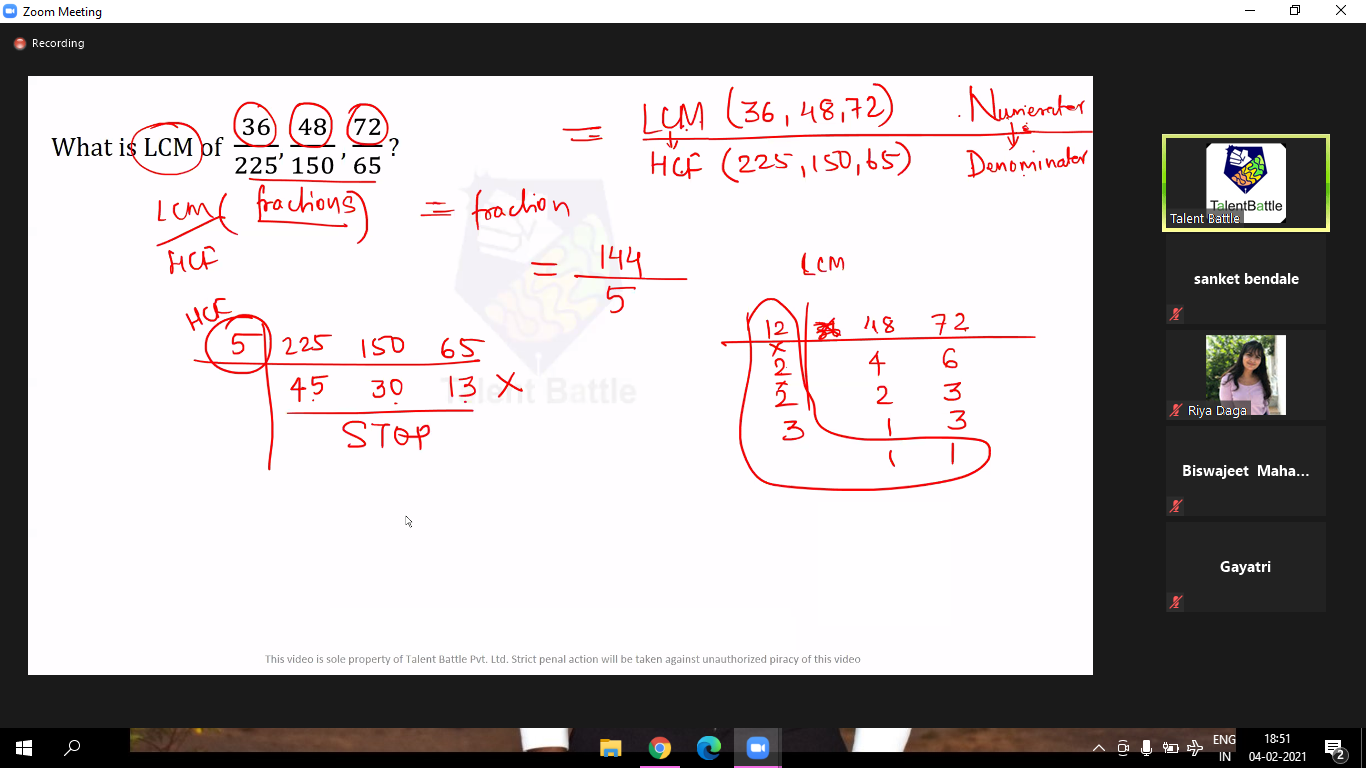 Zoom Meeting
Recording
What is LCM of 36/225, 48/150, 72/65?
= LCM (36, 48, 72) Numerator
HCF (225, 150, 65) Denominator
LCM (fractions) = fraction
HCF
= 144/5
LCM
HCF
5 225 150 65
45 30 13 X
STOP
12 48 72
x
2 4 6
x
2 2 3
3 1 3
1 1
Talent Battle
This video is sole property of Talent Battle Pvt. Ltd. Strict penal action will be taken against unauthorized piracy of this video
TalentBattle
Talent Battle
sanket bendale
Riya Daga
Biswajeet Maha...
Gayatri
ENG
IN
18:51
04-02-2021
2